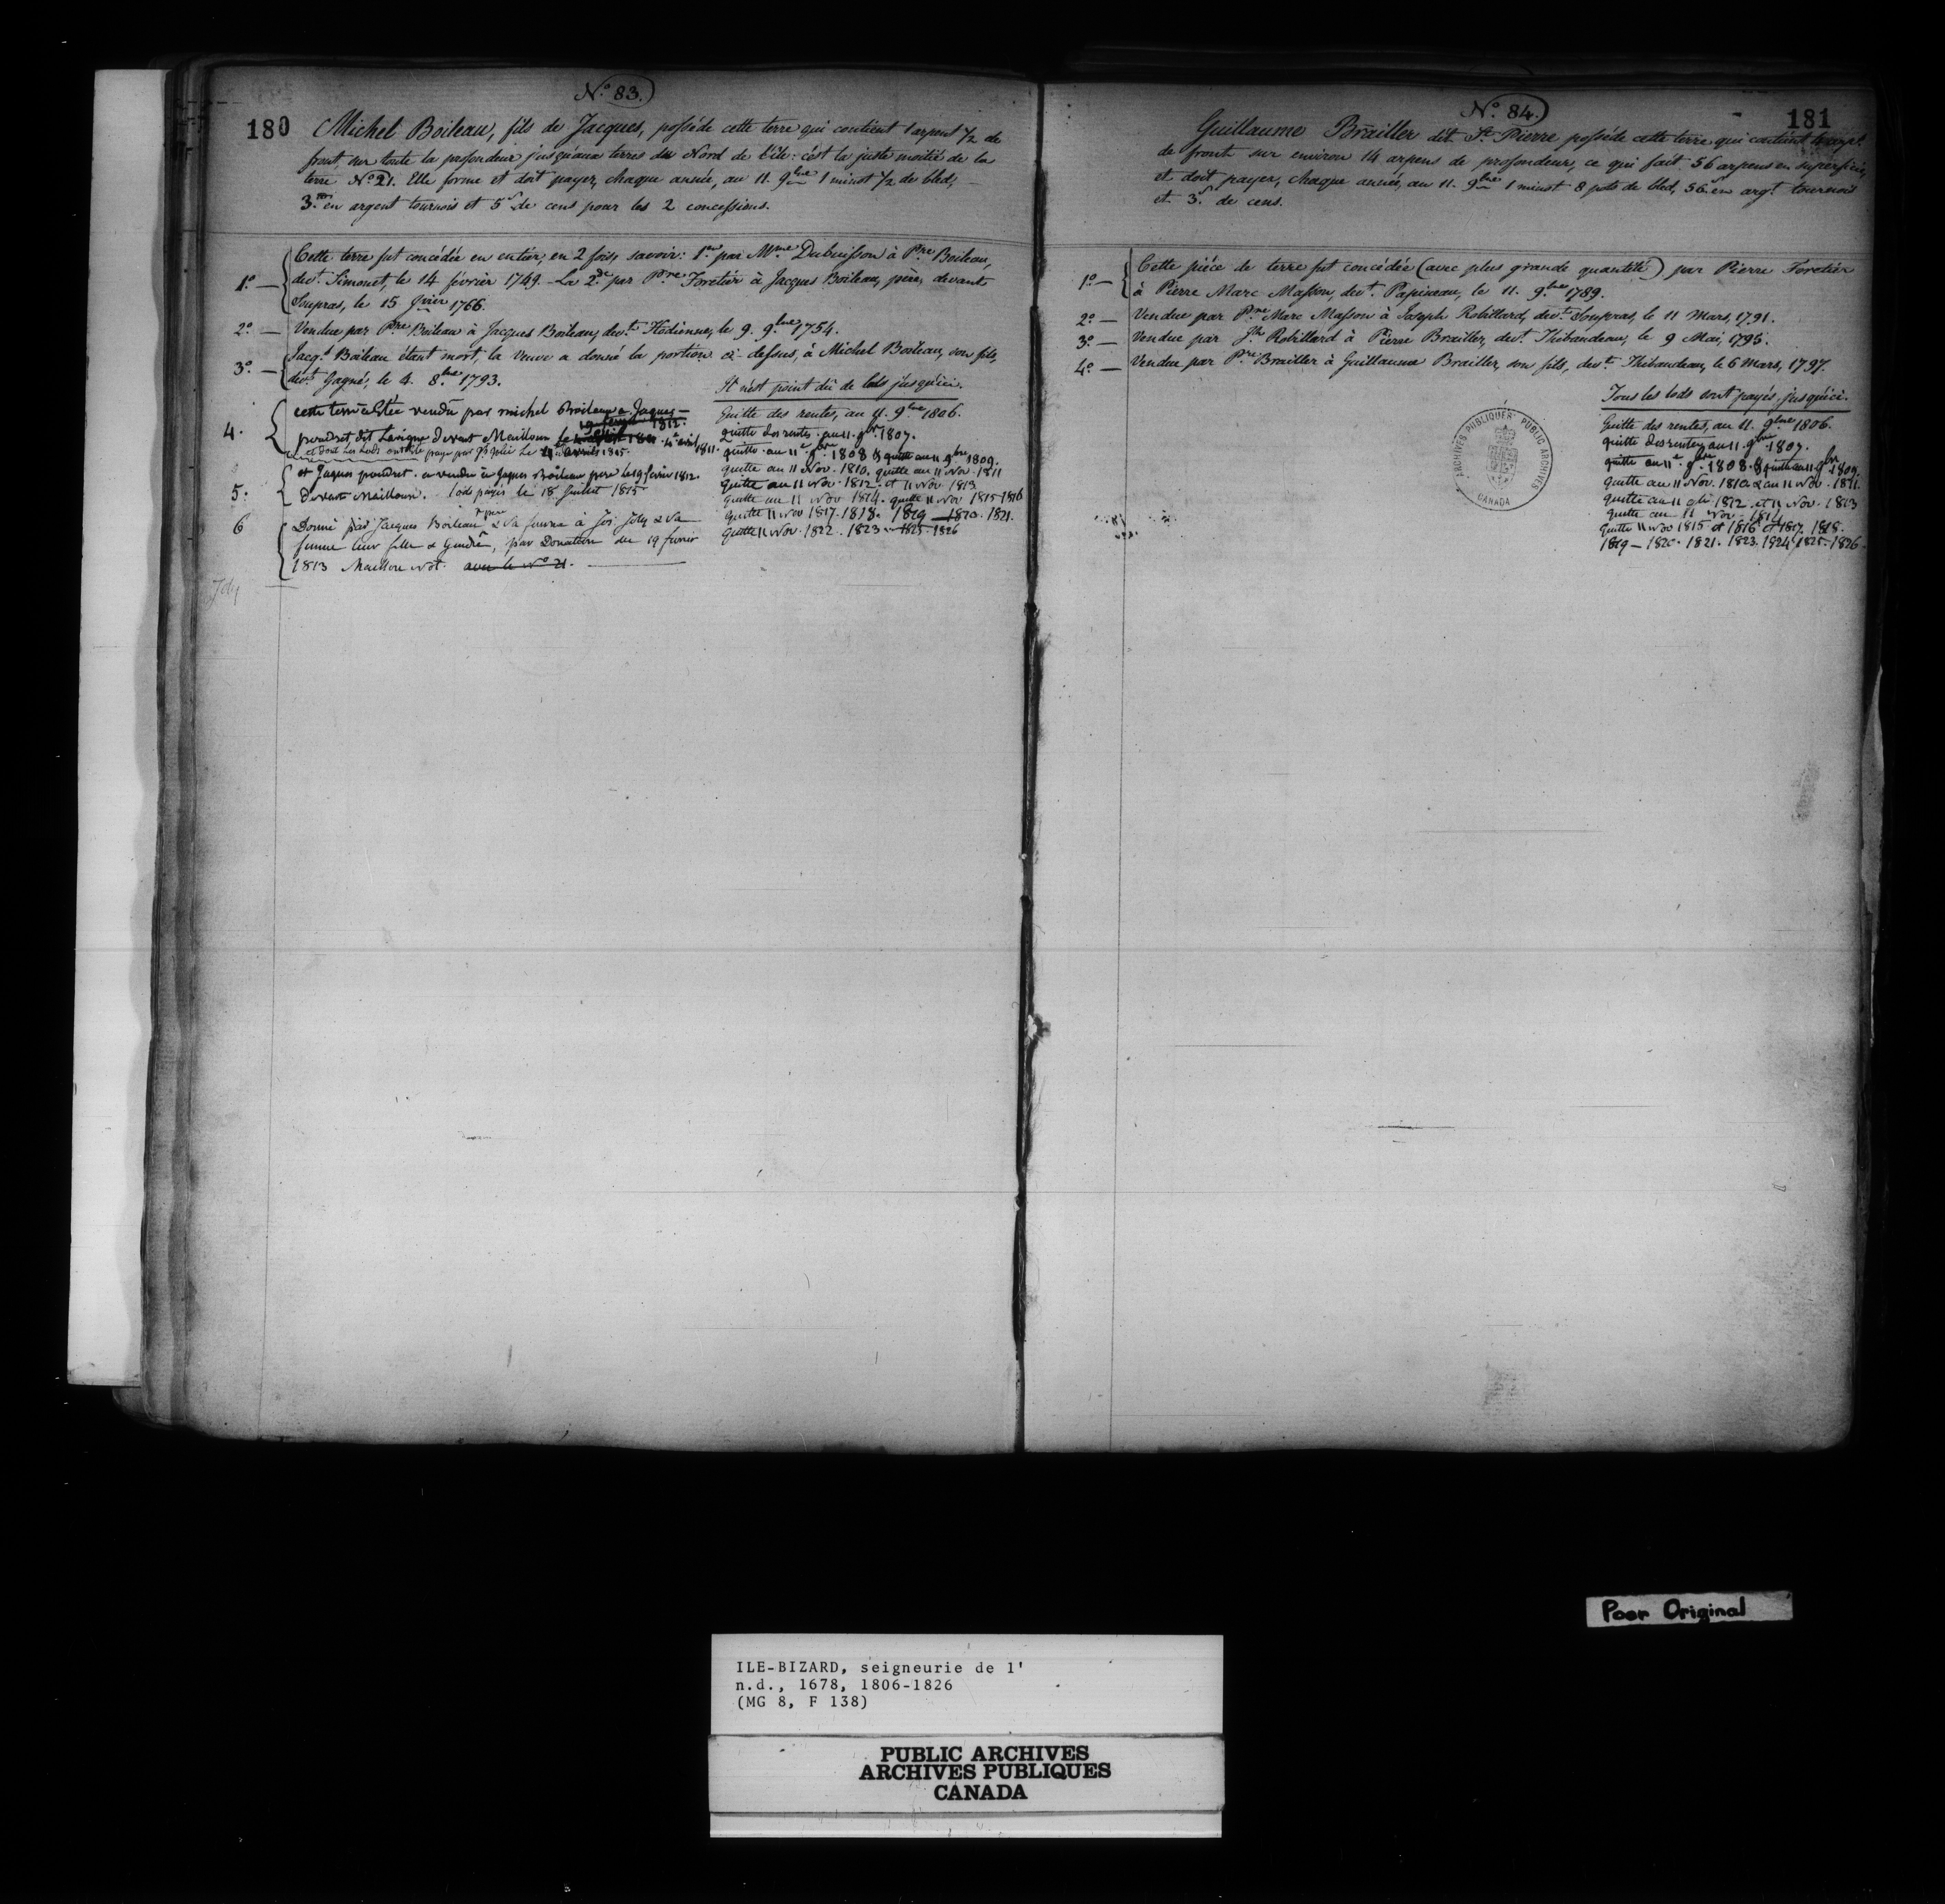 No. 83.
180 Michel Boileau, fils de Jacques, posséde cette terre qui contient 1 arpent ½ de
front, sur toute la profondeur jusqu'aux terres du Nord de l'île: c'est la juste moitié de la
terre No. 21. Elle forme et doit payer, chaque année, au 11. 9bre 1 minot ½ de bled,
3. en argent tournois et 5s de cens pour les 2 concessions.
1o. — Cette terre fut concédée en entier, en 2 fois, savoir: 1re par Mme Dubuisson à Pre Boileau,
devt. Simonet, le 14 février 1749 - La 2de par Pre Foretier à Jacques Boileau, père, devant
Soupras, le 15 Jvier 1766.
2o. — Vendue par Pre Boileau à Jacques Boileau, devt. Hodienne, le 9. 9bre 1754.
3o. — Jacqs. Boileau étant mort, la Veuve a donné la portion ci-dessus, à Michel Boileau, son fils,
devt. Gagné, le 4. 8bre 1793.
4. cette terre a Etée vendu par michel Boileau a Jaques
poudret dit Lavigne devant Mailloux le 4e avril 1811.
et dont Les Lods ont été payé par Js Jolie Le avril 1815.
5. et Jaques poudret a vendu à Jaques Boileau pere le 19 fevrier 1812
devant Mailloux. lods payés le 18 Juillet 1815
6 Donné par Jacques Boileau père & Sa femme à Jos. Joly & Sa
femme leur fille & Gendre, par Donation du 19 fevrier
1813 Mailloux Not. avec le No 21.
Joly
Il n'est point dû de lods jusqu'ici.
Quitte des rentes, au 11. 9bre 1806.
quitte des rentes au 11. 9br. 1807.
quitte au 11e 9bre 1808 & quitte au 11 9bre 1809.
quitte au 11 Nov. 1810. quitte au 11 Nov. 1811
Quitte au 11 Nov. 1812. et 11 Nov. 1813
quitte au 11 Nov 1814. quitte 11 Nov 1815-1816
quitte 11 Nov 1817. 1818. 1819 — 1820. 1821.
quitte 11 Nov. 1822. 1823 1825-1826
No. 84.
181
Guillaume Brailler dit St. Pierre posséde cette terre qui contient 4 arpt.
de front sur environ 14 arpens de profondeur, ce qui fait 56 arpens en superficie,
et doit payer, chaque année, au 11. 9bre 1 minot 8 pots de bled, 56s en argt. tournois
et 3s. de cens.
1o. — Cette piéce de terre fut concédée (avec plus grande quantité) par Pierre Foretier
à Pierre Marc Masson, devt. Papineau, le 11. 9bre 1789.
2o. — Vendue par Pre Marc Masson à Joseph Robillard, devt. Soupras, le 11 Mars, 1791.
3o. — Vendue par Jh Robillard à Pierre Brailler, devt. Thibaudeau, le 9 Mai, 1795.
4o. — Vendue par Pre Brailler à Guillaume Brailler, son fils, devt. Thibaudeau, le 6 Mars, 1797.
Tous les lods sont payés jusqu'ici.
Quitte des rentes, au 11. 9bre 1806.
quitte des rentes au 11. 9bre 1807.
quitte au 11e 9bre 1808. & quitte au 11 9br 1809.
Quitte au 11 Nov. 1810 & au 11 Nov. 1811.
quitte au 11 Nov 1812 et 11 Nov. 1813
quitte au 11 Nov. 1814
Quitte 11 Nov 1815 et 1816 et 1817. 1818.
1819 — 1820. 1821. 1823. 1824 1825-1826.
ARCHIVES PUBLIQUES · PUBLIC ARCHIVES
CANADA
Poor Original
ILE-BIZARD, seigneurie de l'
n.d., 1678, 1806-1826
(MG 8, F 138)
PUBLIC ARCHIVES
ARCHIVES PUBLIQUES
CANADA